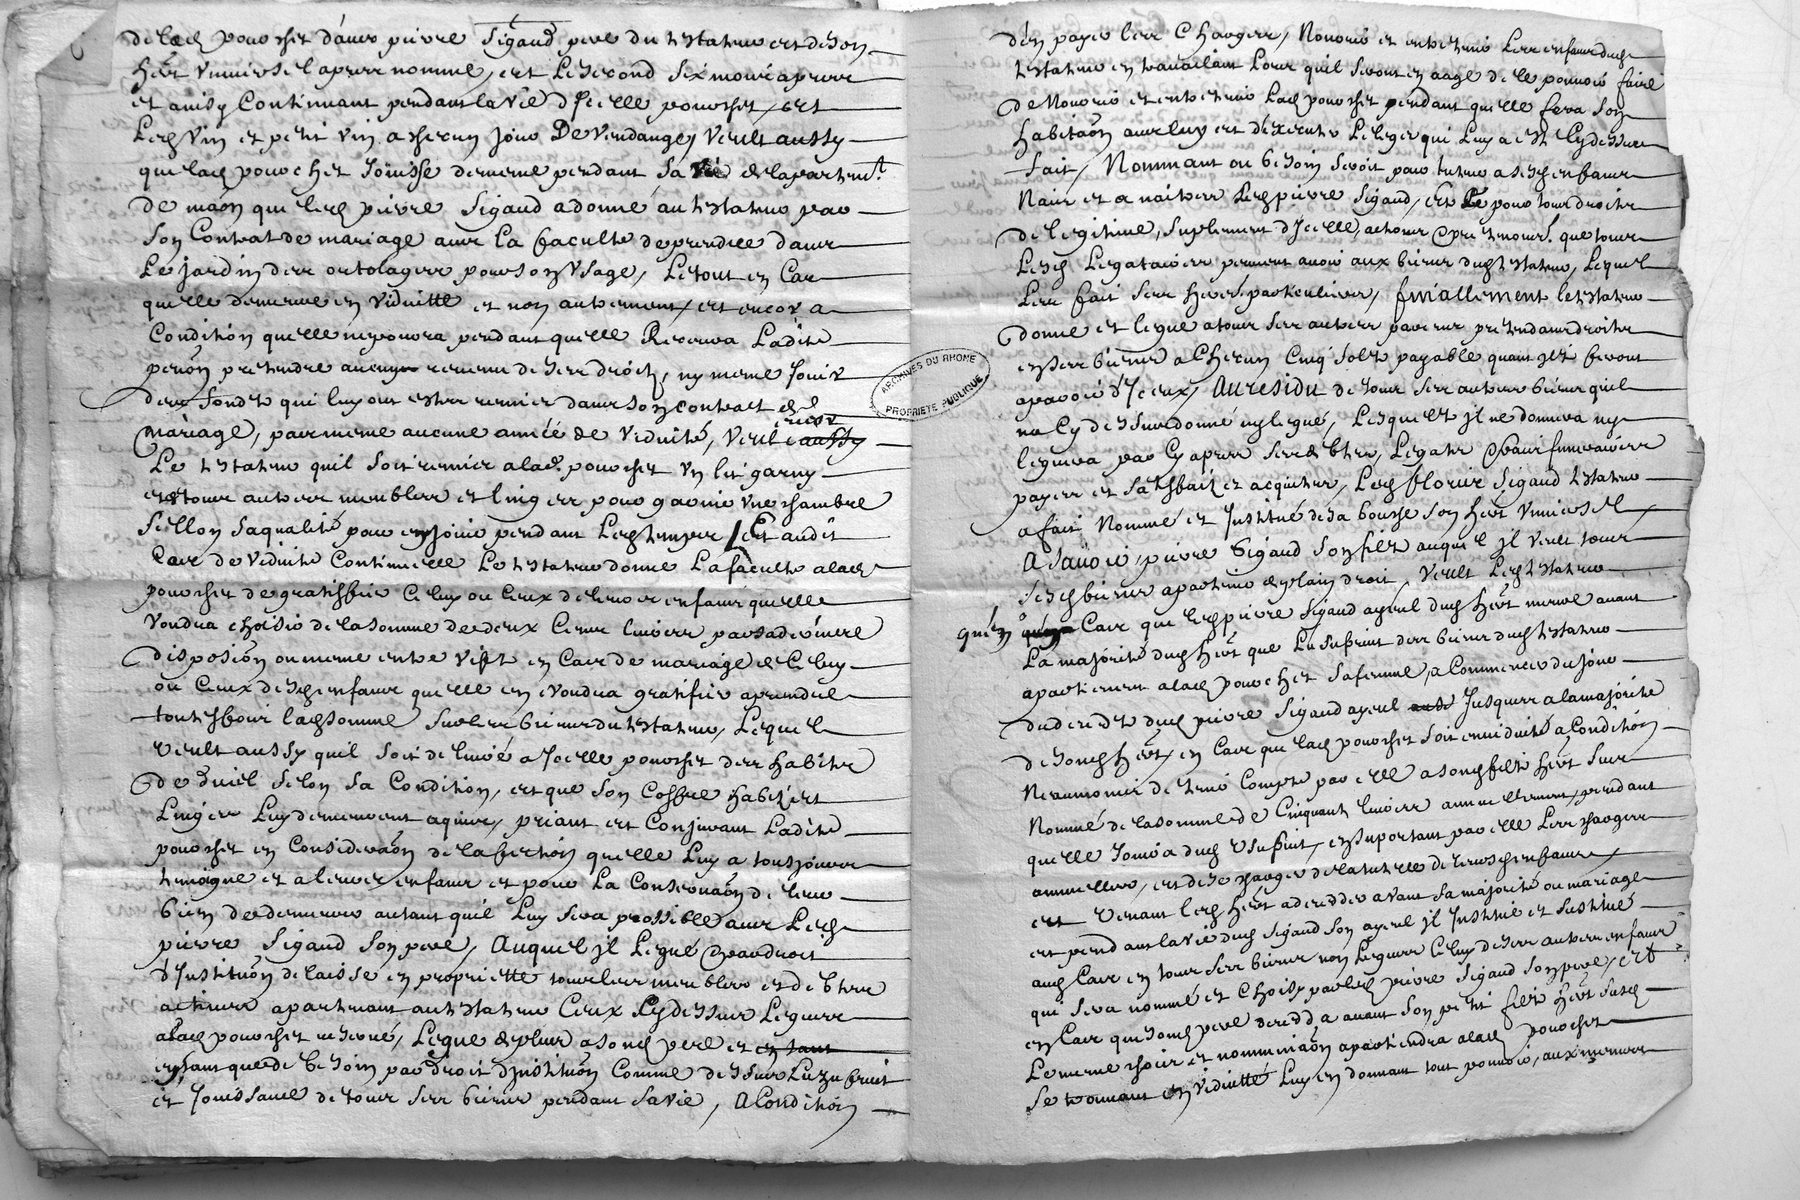 delad pourchet d'avec pierre Sigaud pere du testateur et de son
hert universel apres nommé, et le second six mois apres
et ainsy continuant pendant la vie d'Jcelle pourchet, et
Led vin et petit vin a chacun jour De Vendanges Veult aussy
que lad pourchet Jouisse de meme pendant sa vie de lapartemt
de maōn que led pierre Sigaud a donné au testateur par
son Contrat de mariage avec la faculté de prendre dans
Le jardin des ortolages pour son Usage, Le tout en Cas
quelle demeure en Viduitté et non autrement, et encor a
Condition quelle ne poura pendant quelle Recevra Ladite
pension pretendre aucun revenu de ses droits, ny meme Jouir
des fondz qui luy ont estez remis dans son contract de
mariage, pas meme aucune année de Viduité, Veult encor aussy
Le testateur quil soit remis a lad pourchet Un lit garny
et tous autres meubles et linges pour garnir une chambre
Seillon sa qualité pour en jouir pendant Led temps / Et audit
Cas de Viduité Continuelle Le testateur donne La faculté a lad
pourchet de gratiffier Celuy ou Ceux de leurs enfans quelle
Voudra choisir de la somme de deux Cents livres par sa derniere
disposiōn ou meme entre Vifs en Cas de mariage de Celuy
ou Ceux desd enfans quelle en voudra gratifier a prendre
touttesfois lad somme sur les biens du testateur, Lequel
Veult aussy quil soit delivré a Jcelle pourchet des habits
de dueil selon sa Condition, et que son Coffre habitz et
Linges Luy demeurent aquis, priant et Conjurant Ladite
pourchet en Consideraōn de lafection quelle Luy a tousjours
temoigné et a leurs enfans et pour La Conservaōn de leur
bien de demeurer autant quil Luy sera possible avec Led
pierre Sigaud son pere, Auquel jl Legue par droit
d'Jnstituōn delaisse en proprietté tous les meubles et debtes
actives apartenant au testateur Ceux Cy dessus Legués
a lad pourchet reservé, Legue de plus a sond pere et en tant
en tant que de besoin par droit d'Jnstituōn Comme dessus Luzufruit
et Jouissance de tous ses biens pendant sa vie, A Condition
d'en payer les Charges, Nourir et entretenir Les enfans dud
testateur en travaillant pour quil seront en aage de le pouvoir faire
de Nourir et entretenir Lad pourchet pendant quelle fera son
habitaōn avec luy et d'executer Le legs qui Luy a esté Cy dessus
fait, Nommant ou besoin seroit pour tuteur a sesd enfans
Nais et a naitre Led pierre Sigaud, et pour tous droits
de legitime, suplement d'Jcelle, actions pretentions que tous
Lesd Legataires peuvent avoir aux biens dud testateur, Lequel
Les fait ses heres particuliers, finallement le testateur
donne et legue a tous ses autres parens pretendans droits
en ses biens a Chacun Cinq sols payable quant jlz feront
aparoir d'Jceux, Au residu de tous ses autres biens quil
na Cy dessus donné ny legué, Lesquels jl ne donnera ny
leguera par Cy apres ses debtes, Legats frais funeraires
payes et satisfaitz et acquitez, Led floris Sigaud testateur
a fait Nommé et Jnstitué de sa bouche son hert Universel
A sauoir, pierre Sigaud son filz auquel jl Veult tous
sesd biens apartenir de plain droit, Veult Led testateur
qu'en Cas que led pierre Sigaud ayeul dud hert meure avant
La majorité dud hert que Lusufruit des biens dud testateur
apartienent a lad pourchet sa femme, a Commencer du jour
du decedz dud pierre Sigaud ayeul Jusques a la majorité
de sond hert, en Cas que lad pourchet soit en viduité a Condition
Neanmoins de tenir Compte par elle a sond filz hert sus
Nommé de la somme de Cinquante livres annuellement, pendant
quelle Jouira dud Usufruit, en suportant par elle Les charges
annuelles, et de se charger de la tutelle de leursd enfans
et Venant led hert a deceder avant sa majorité ou mariage
et pendant la vie dud Sigaud son ayeul jl Jnstitue et sustitue
aud Cas en tous ses biens non Legues Celuy de ses autres enfans
qui sera nommé et Choisy par led pierre Sigaud son pere, et
en Cas que sond pere deceda avant son petit filz hert susd
Le meme choix et nominaōn apartiendra a lad pourchet
se trouvant en Viduitté Luy en donnant tout pouvoir, aux memes
ARCHIVES DU RHONE
PROPRIETE PUBLIQUE